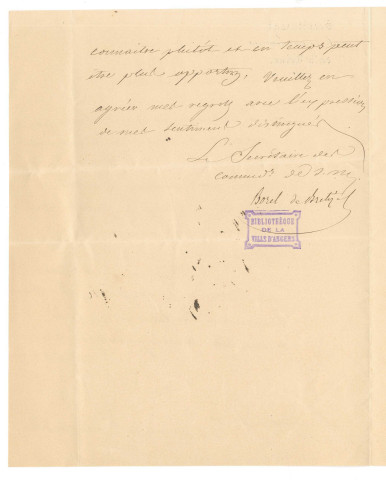 connaître plutôt et en temps peut
être plus opportun. Veuillez en
agréer mes regrets avec l'expression
de mes sentiments distingués
Le Secrétaire des
command
Borel de
BIBLIOTHÈQUE
DE LA
VILLE D'ANGERS